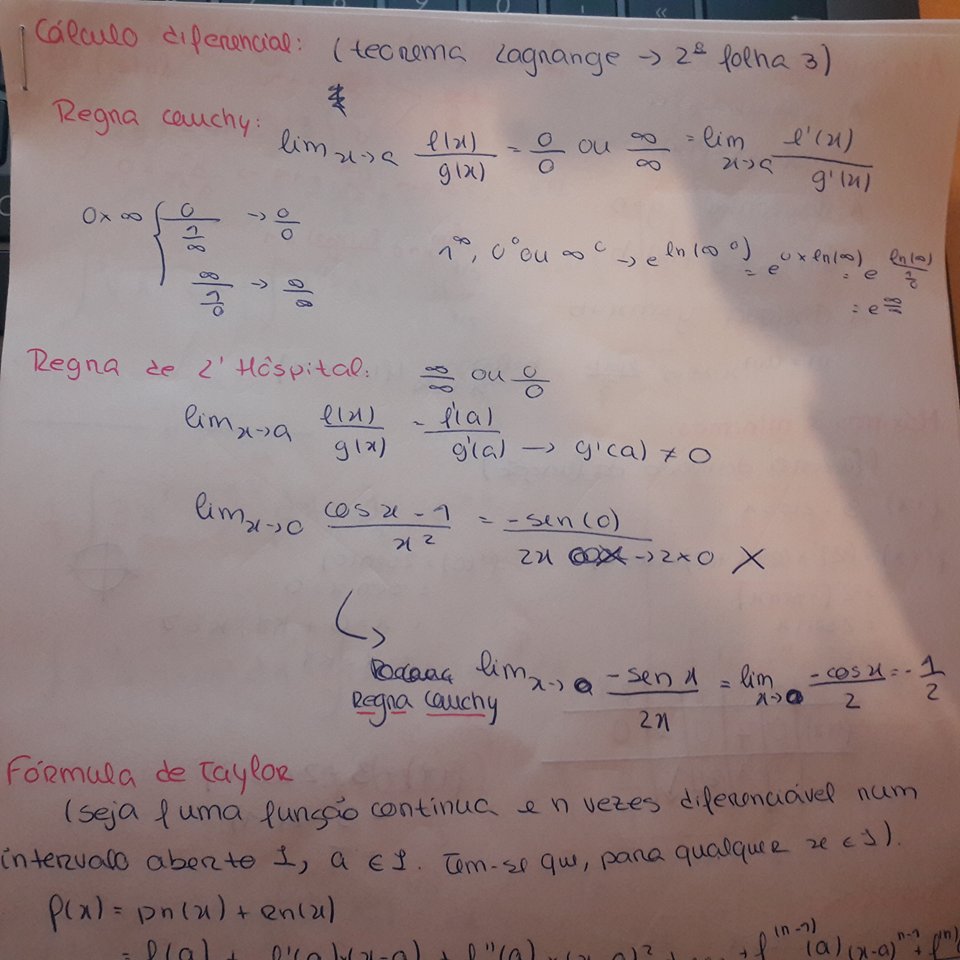 Cálculo diferencial: (teorema Lagrange → 2ª folha 3)
Regra cauchy:
lim x→a f(x)/g(x) = 0/0 ou ∞/∞ = lim x→a f'(x)/g'(x)
0×∞ { 0/(1/∞) → 0/0
∞/(1/0) → ∞/∞
1^∞, 0^0 ou ∞^0 → e^ln(∞^0) = e^(0×ln(∞)) = e^(ln(∞)/(1/0))
= e^(∞/∞)
Regra de L'Hôspital: ∞/∞ ou 0/0
lim x→a f(x)/g(x) = f'(a)/g'(a) → g'(a) ≠ 0
lim x→0 (cos x - 1)/x² = -sen(0)/2x → 2×0 X
lim x→0 -sen x/2x = lim x→0 -cos x/2 = -1/2
Regra cauchy
Fórmula de Taylor
(seja f uma função continua e n vezes diferenciável num
intervalo aberto I, a ∈ I. Tem-se que, para qualquer x ∈ I).
f(x) = pn(x) + en(x)
= f(a) + f'(a)×(x-a) + f''(a)×(x-a)² + ... + f^(n-1)(a)(x-a)^(n-1) + f^(n)